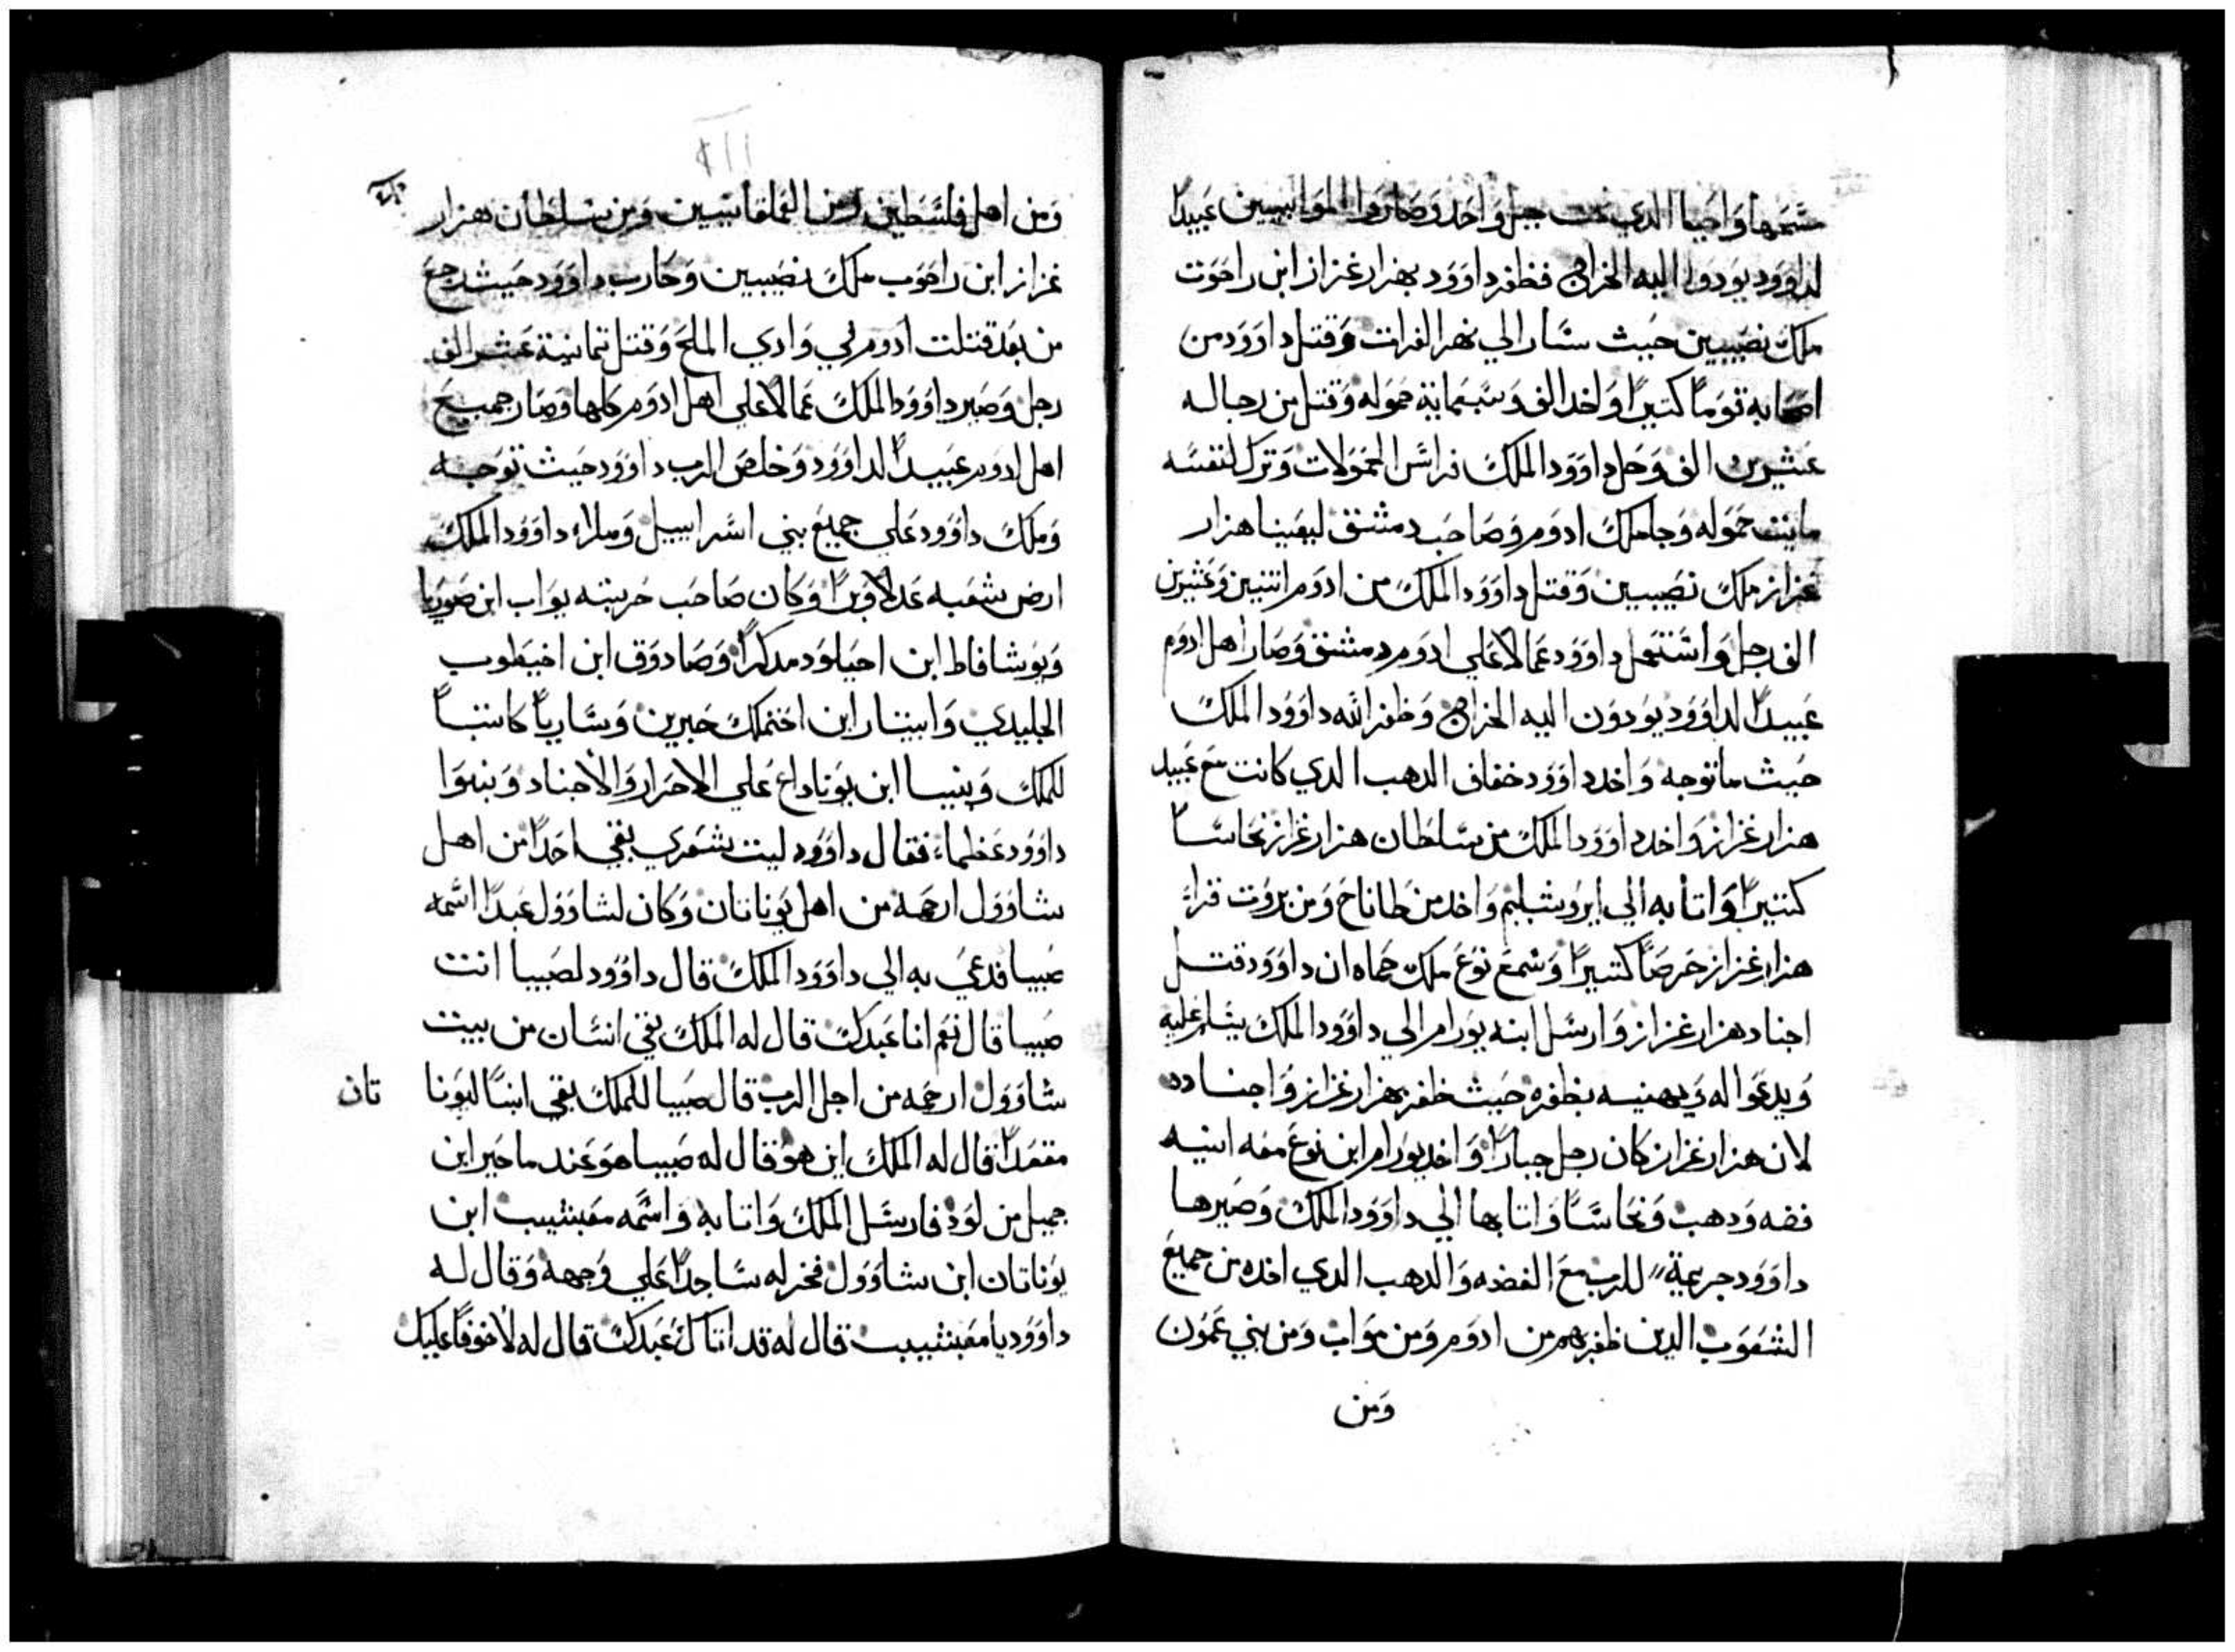 قسمها واحيا الدي تحت حبل واحد وصاروا الموابيين عبيدًا
لداوود يودوا اليه الخراج فظفر داوود بهزار غزاز ابن راحوت
ملك نصيبين حيث سار الي نهر الفرات وقتل داوود من
اصحابه قومًا كتيرًا واخد الف وسبعماية حموله وقتل من رجاله
عشرين الف وحل داوود الملك فراس الحمولات وترك لنفسه
مايتت حموله وجا ملك ادوم وصاحب دمشق ليعينا هزار
غزاز ملك نصيبين وقتل داوود الملك من ادوم اتنين وعشرين
الف رجل واستعمل داوود عمالا علي ادوم دمشق وصار اهل ادوم
عبيدًا لداوود يودون اليه الخراج وظفر الله داوود الملك
حيث ما توجه واخد داوود خفاف الدهب الدي كانت مع عبيد
هزار غزاز واخد داوود الملك من سلطان هزار غزاز نحاسًا
كتيرًا واتا به الي ايروشليم واخد من طاناح ومن بروت قراء
هزار غزاز حرصًا كتيرًا وسمع توع ملك حماه ان داوود قتل
اجناد هزار غزاز وارسل ابنه يورام الي داوود الملك يسلم عليه
ويدعوا له ويهنيه بظفره حيث ظفر بهزار غزاز واجناده
لان هزار غزاز كان رجل جبارًا واخد يورام ابن توع معه انيه
فضه ودهب ونحاسًا واتا بها الي داوود الملك وصيرها
داوود جريمة للرب مع الفضه والدهب الدي اخده من جميع
الشعوب الدين ظفر بهم من ادوم ومن مواب ومن بني عمون
ومن
ومن اهل فلسطين ومن العملقانيين ومن سلطان هزار
غزاز ابن راحوب ملك نصيبين وحارب داوود حيث رجع
من بعد قتلت ادوم في وادي الملح وقتل تمانية عشر الف
رجل وصير داوود الملك عمالا علي اهل ادوم كلها وصار جميع
اهل ادوم عبيدًا لداوود وخلص الرب داوود حيث توجه
وملك داوود علي جميع بني اسراييل وملاء داوود الملك
ارض شعبه عدلا وبرًا وكان صاحب حربته يواب ابن صوريا
ويوشافاط ابن احيلود مدكرًا وصادوق ابن اخيطوب
الجليدي وابيتار ابن اختملك حبرين وساريا كاتبًا
للملك وبنيا ابن يوناداع علي الاحرار والاجناد وبنوا
داوود عظما فقال داوود ليت شعري بقي احدًا من اهل
شاوول ارحمه من اهل يوناتان وكان لشاوول عبدًا اسمه
صيبا فدعي به الي داوود الملك قال داوود لصيبا انت
صيبا قال نعم انا عبدك قال له الملك بقي انسان من بيت
شاوول ارحمه من اجل الرب قال صيبا للملك بقي ابنًا ليونا تان
مقعدًا قال له الملك اين هو قال له صيبا هو عند ماخير ابن
جميل من لود فارسل الملك واتا به واسمه مفبشيب ابن
يوناتان ابن شاوول فخر له ساجدًا علي وجهه وقال له
داوود يا مفبشيب قال له قد اتاك عبدك قال له لا خوفًا عليك